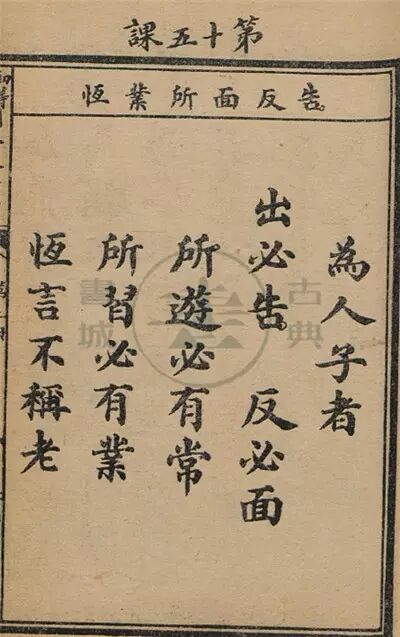 第十五課
告反面所業恆
為人子者
出必告 反必面
所遊必有常
所習必有業
恆言不稱老
古典書城